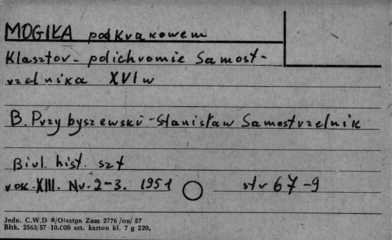 MOGIŁA pod Krakowem
Klasztor - polichromie Samost-
rzelnika XVI w
B. Przybyszewski - Stanisław Samostrzelnik
Biul. hist. szt
rok XIII. Nr. 2-3. 1951 str 67-9
Jedn. C.W.D 8/Olsztyn Zam 2776/on/57
Błtk. 2563/57 10.000 szt. karton kl. 7 g 220.